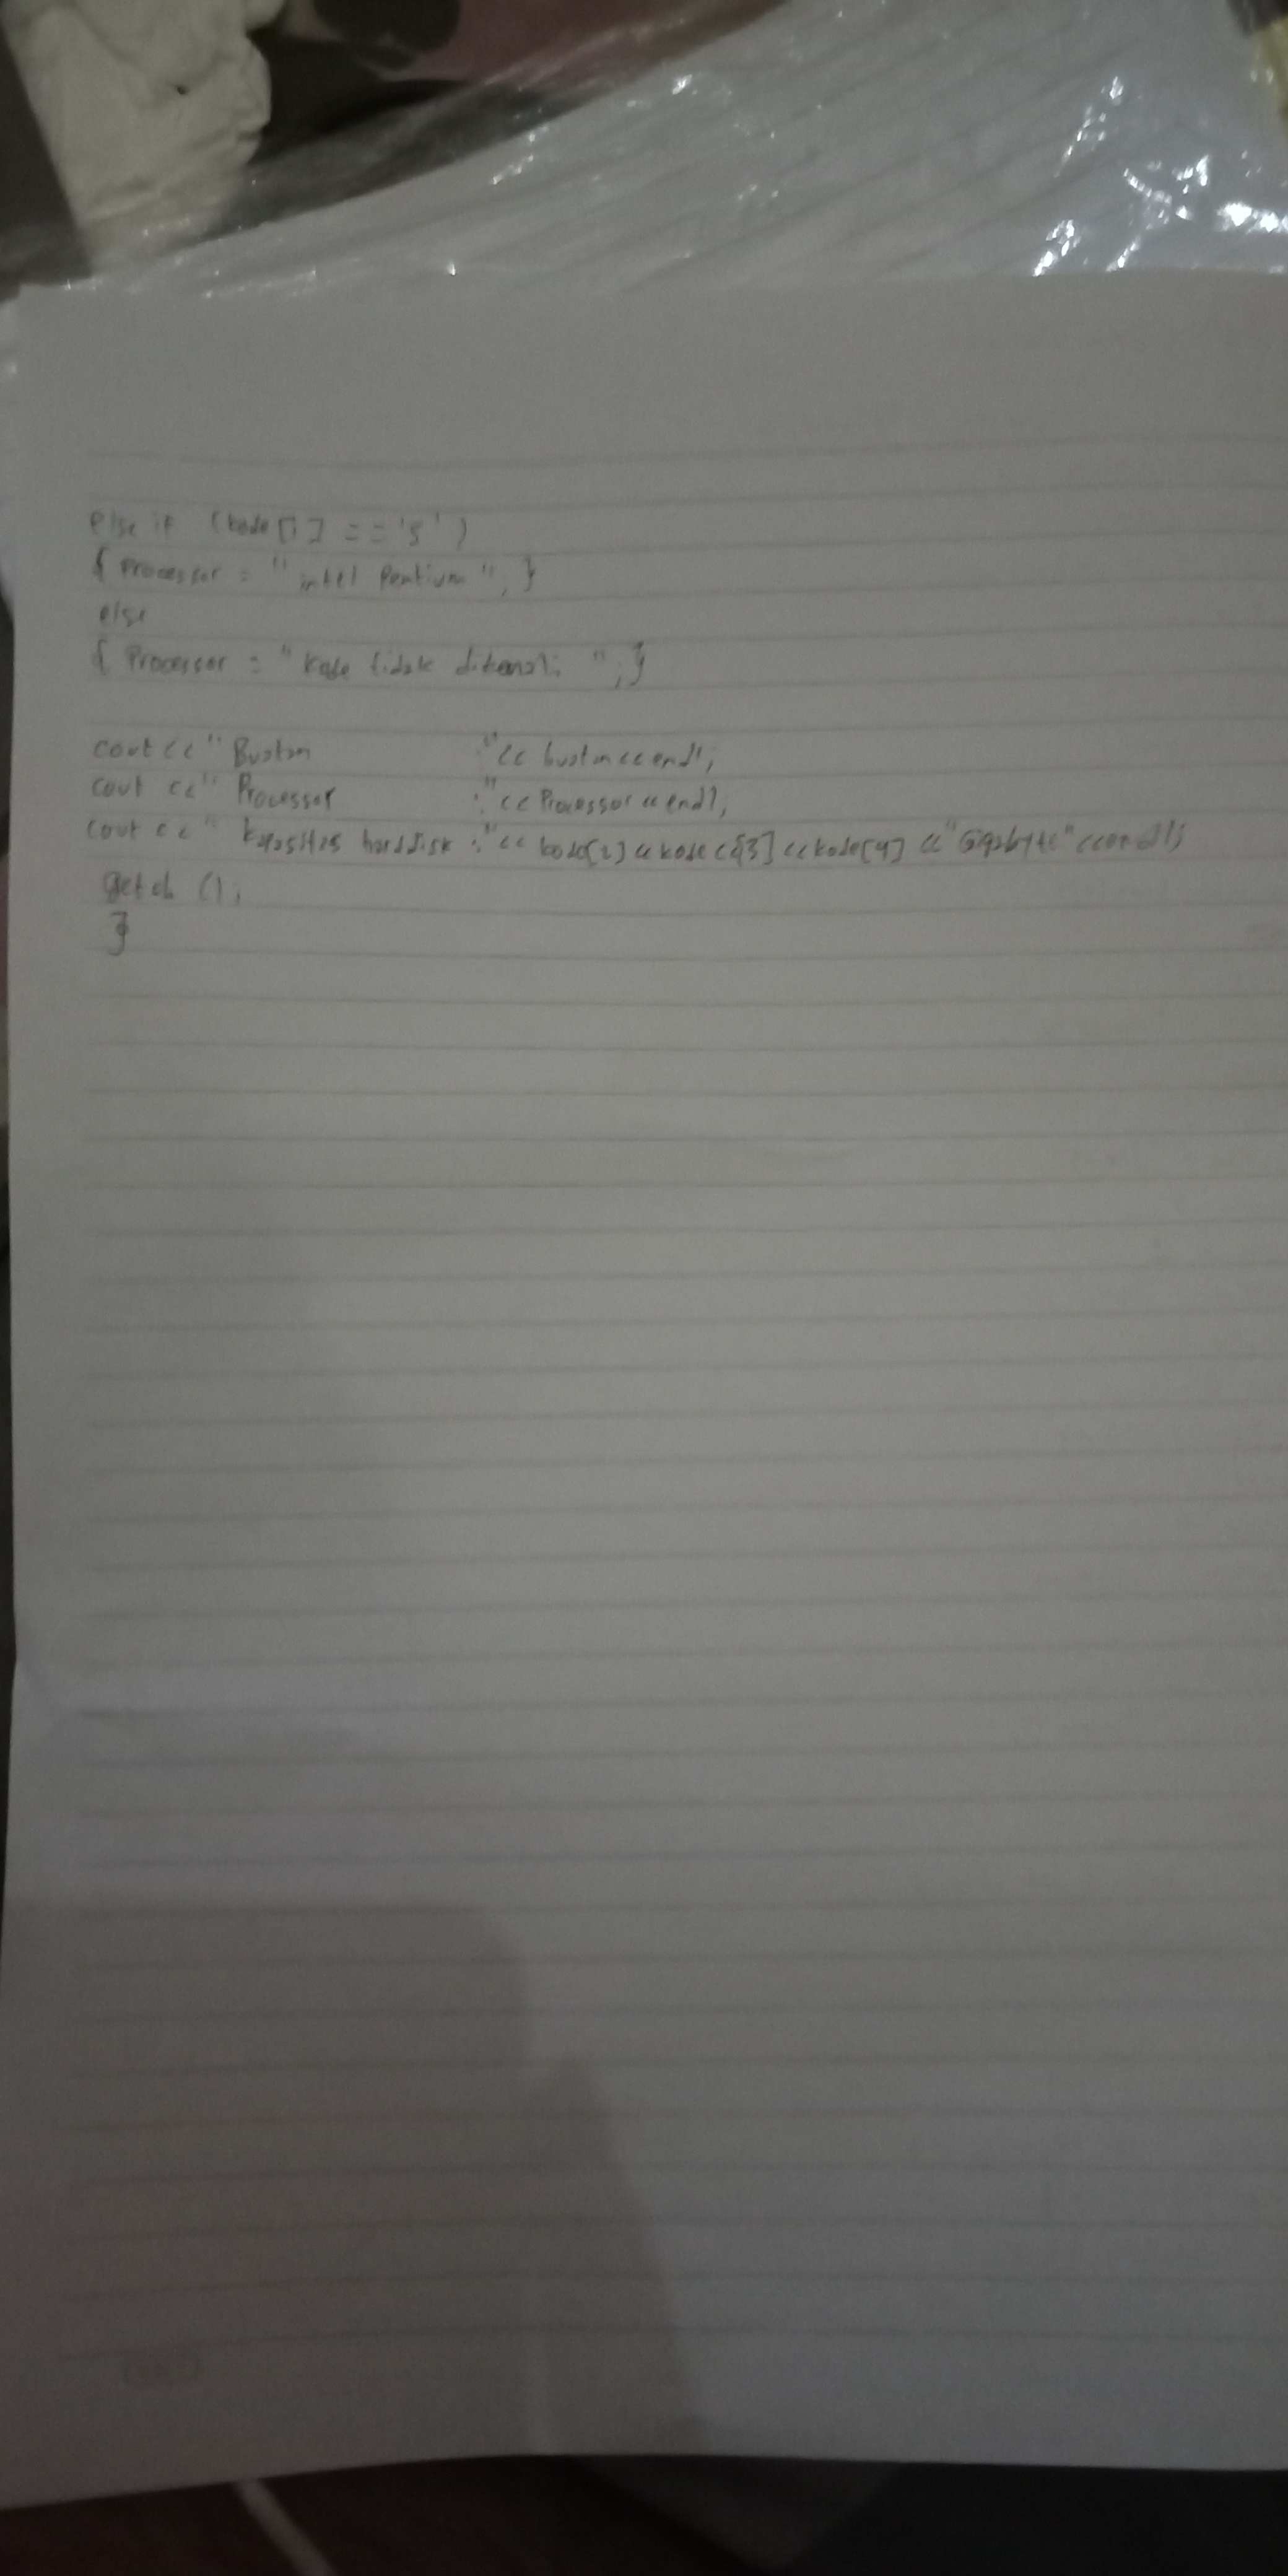 else if (kode [1] == '5')
{ Processor = " intel Pentium "; }
else
{ Processor = " Kode tidak dikenali "; }
cout << " Buatan :" << buatan << endl;
cout << " Processor :" << Processor << endl;
cout << " Kapasitas harddisk :" << kode[2] << kode <<[3] << kode[4] << "Gigabyte" << endl;
getch ();
}